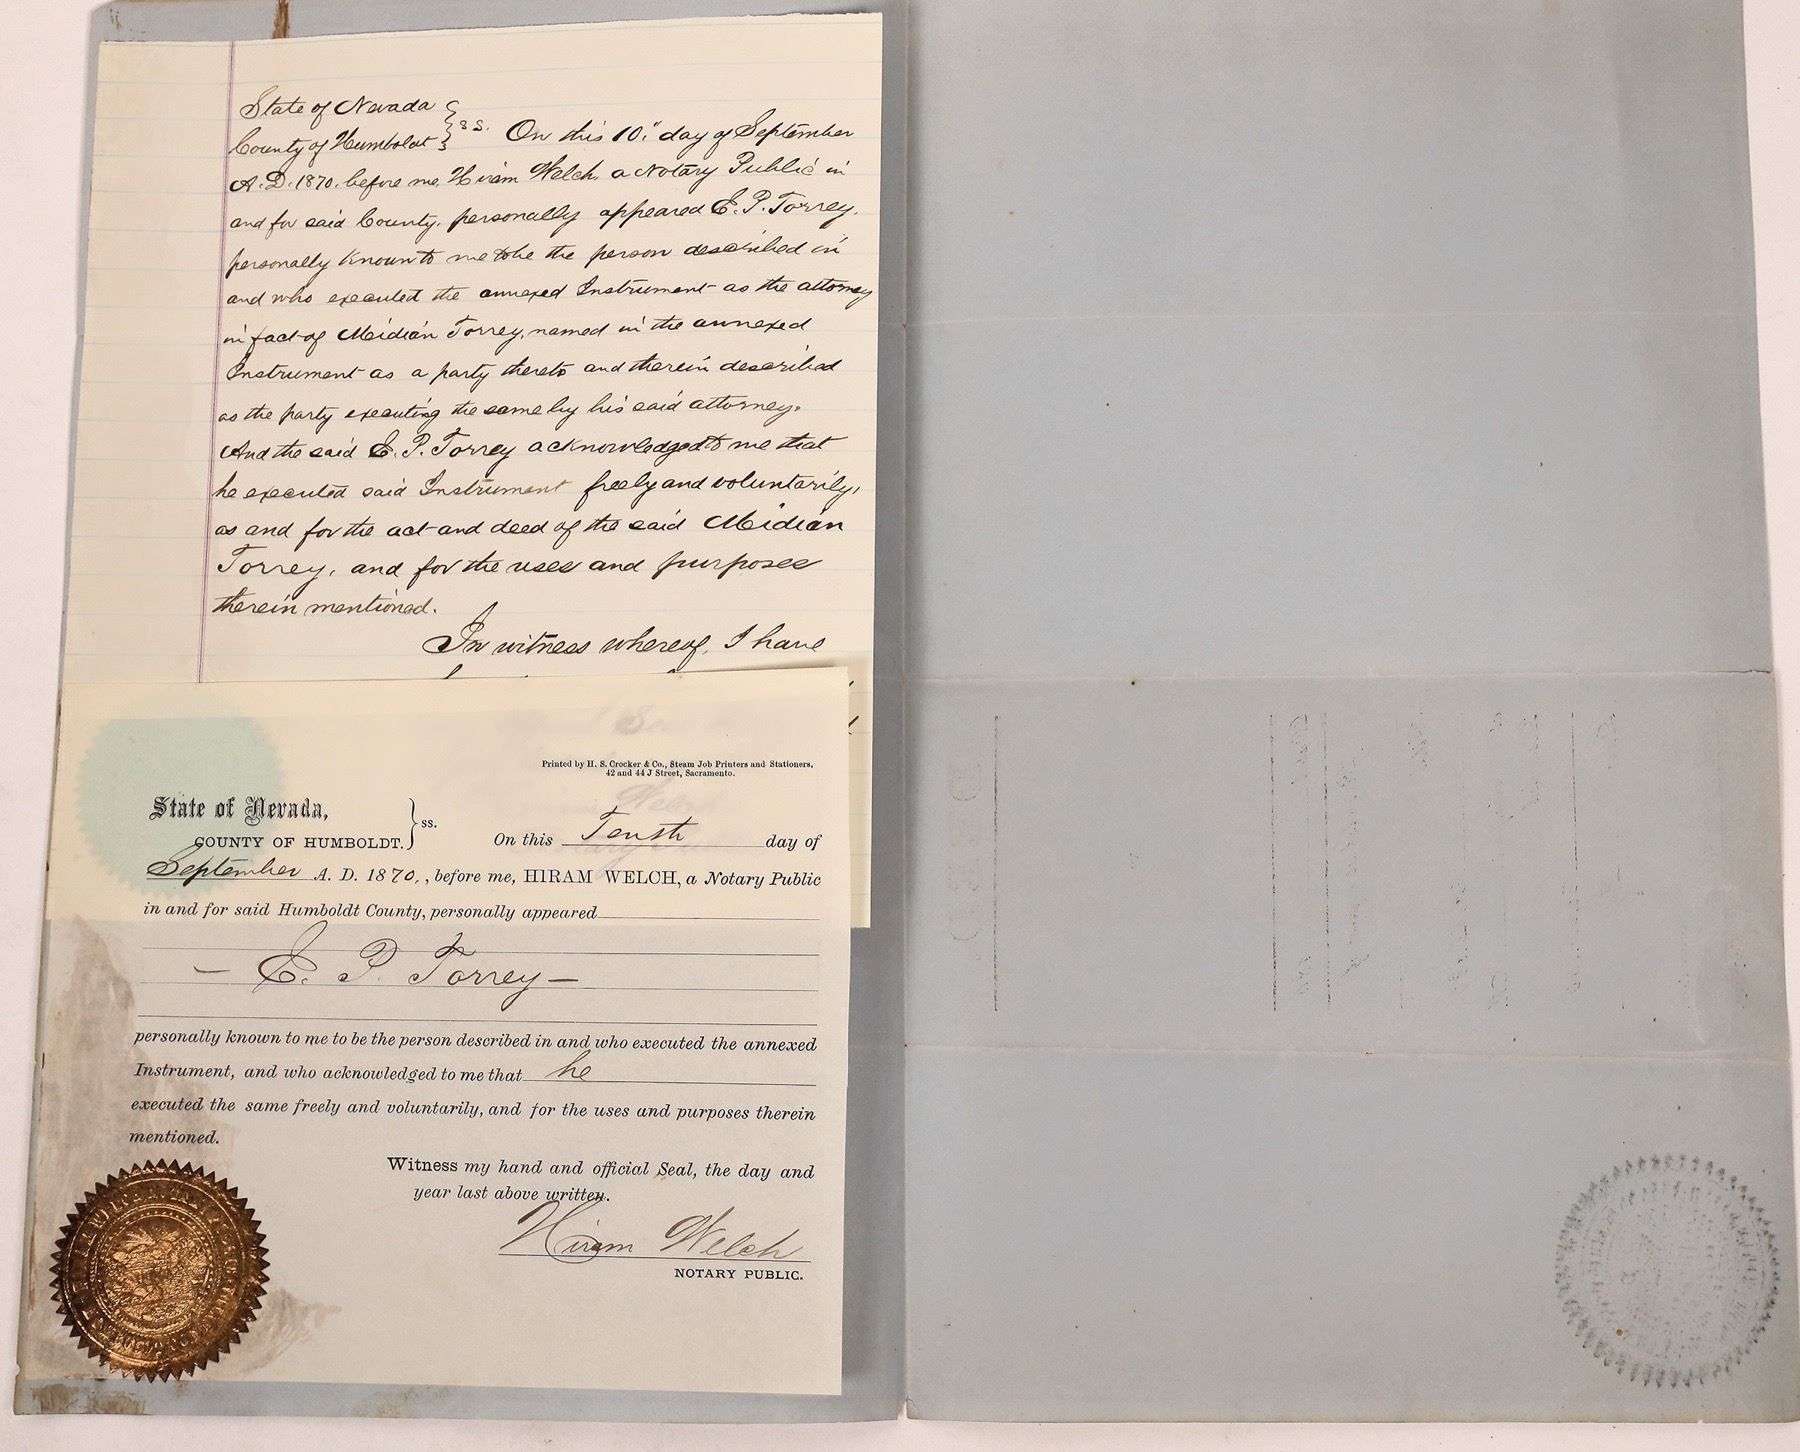 State of Nevada
County of Humboldt } ss. On this 10." day of September
A.D. 1870. before me, Hiram Welch, a Notary Public in
and for said County, personally appeared E. P. Torrey,
personally known to me to be the person described in
and who executed the annexed Instrument as the attorney
in fact of Midian Torrey, named in the annexed
Instrument as a party thereto and therein described
as the party executing the same by his said attorney.
And the said E. P. Torrey acknowledged to me that
he executed said Instrument freely and voluntarily,
as and for the act and deed of the said Midian
Torrey, and for the uses and purposes
therein mentioned.
In witness whereof, I have
Printed by H. S. Crocker & Co., Steam Job Printers and Stationers,
42 and 44 J Street, Sacramento.
State of Nevada,
COUNTY OF HUMBOLDT. } ss. On this Tenth day of
September A. D. 1870, , before me, HIRAM WELCH, a Notary Public
in and for said Humboldt County, personally appeared
— E. P. Torrey —
personally known to me to be the person described in and who executed the annexed
Instrument, and who acknowledged to me that he
executed the same freely and voluntarily, and for the uses and purposes therein
mentioned.
Witness my hand and official Seal, the day and
year last above written.
Hiram Welch
NOTARY PUBLIC.